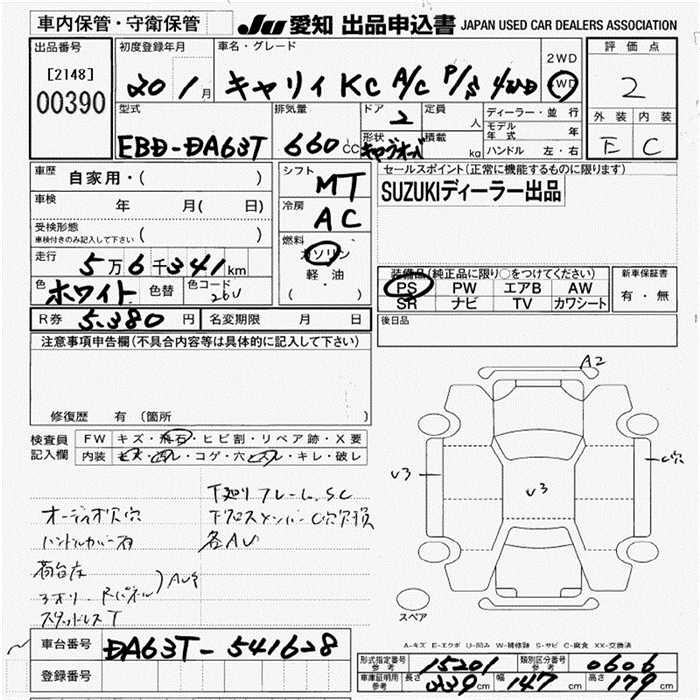 車内保管・守衛保管
JU 愛知 出品申込書 JAPAN USED CAR DEALERS ASSOCIATION
出品番号
[2148]
00390
初度登録年月
20年 1月
車名・グレード
キャリィ KC A/C P/S 4WD
2WD
4WD
評価点
2
外装 内装
E C
型式
EBD-DA63T
排気量
660cc
ドア
2
形状
定員
人
積載
kg
ディーラー・並行
モデル年式 年
ハンドル 左・右
車歴
自家用・( )
車検
年 月( 日)
受検形態
車検付きのみ記入して下さい ( )
走行
5万6千341km
色
ホワイト
色替
色コード
26U
シフト
MT
冷房
AC
燃料
ガソリン
軽・油
( ・ )
セールスポイント(正常に機能するものに限ります)
SUZUKIディーラー出品
装備品(純正品に限り○をつけてください)
PS PW エアB AW
SR ナビ TV カワシート
新車保証書
有・無
後日品
R券 5.380円
名変期限 月 日
注意事項申告欄(不具合内容等は具体的に記入して下さい)
修復歴 有(箇所 )
検査員記入欄
FW キズ・飛石・ヒビ割・リペア跡・X要
内装 キズ・汚レ・コゲ・穴・スレ・キレ・破レ
下廻りフレームSC
オーディオ穴穴
下クロスメンバーC穴欠損
ハンドルカバー有
各AU
荷台床
アオリ・Rパネル)AUS
スタッドレスT
A2
U3
U3
C穴
スペア
A-キズ E-エクボ U-凹み W-補修跡 S-サビ C-腐食 XX-交換済
車台番号
DA63T-541628
登録番号
形式指定番号 参考
15201
類別区分番号 参考
0606
車庫証明用 参考
長さ 339cm 幅 147cm 高さ 179cm